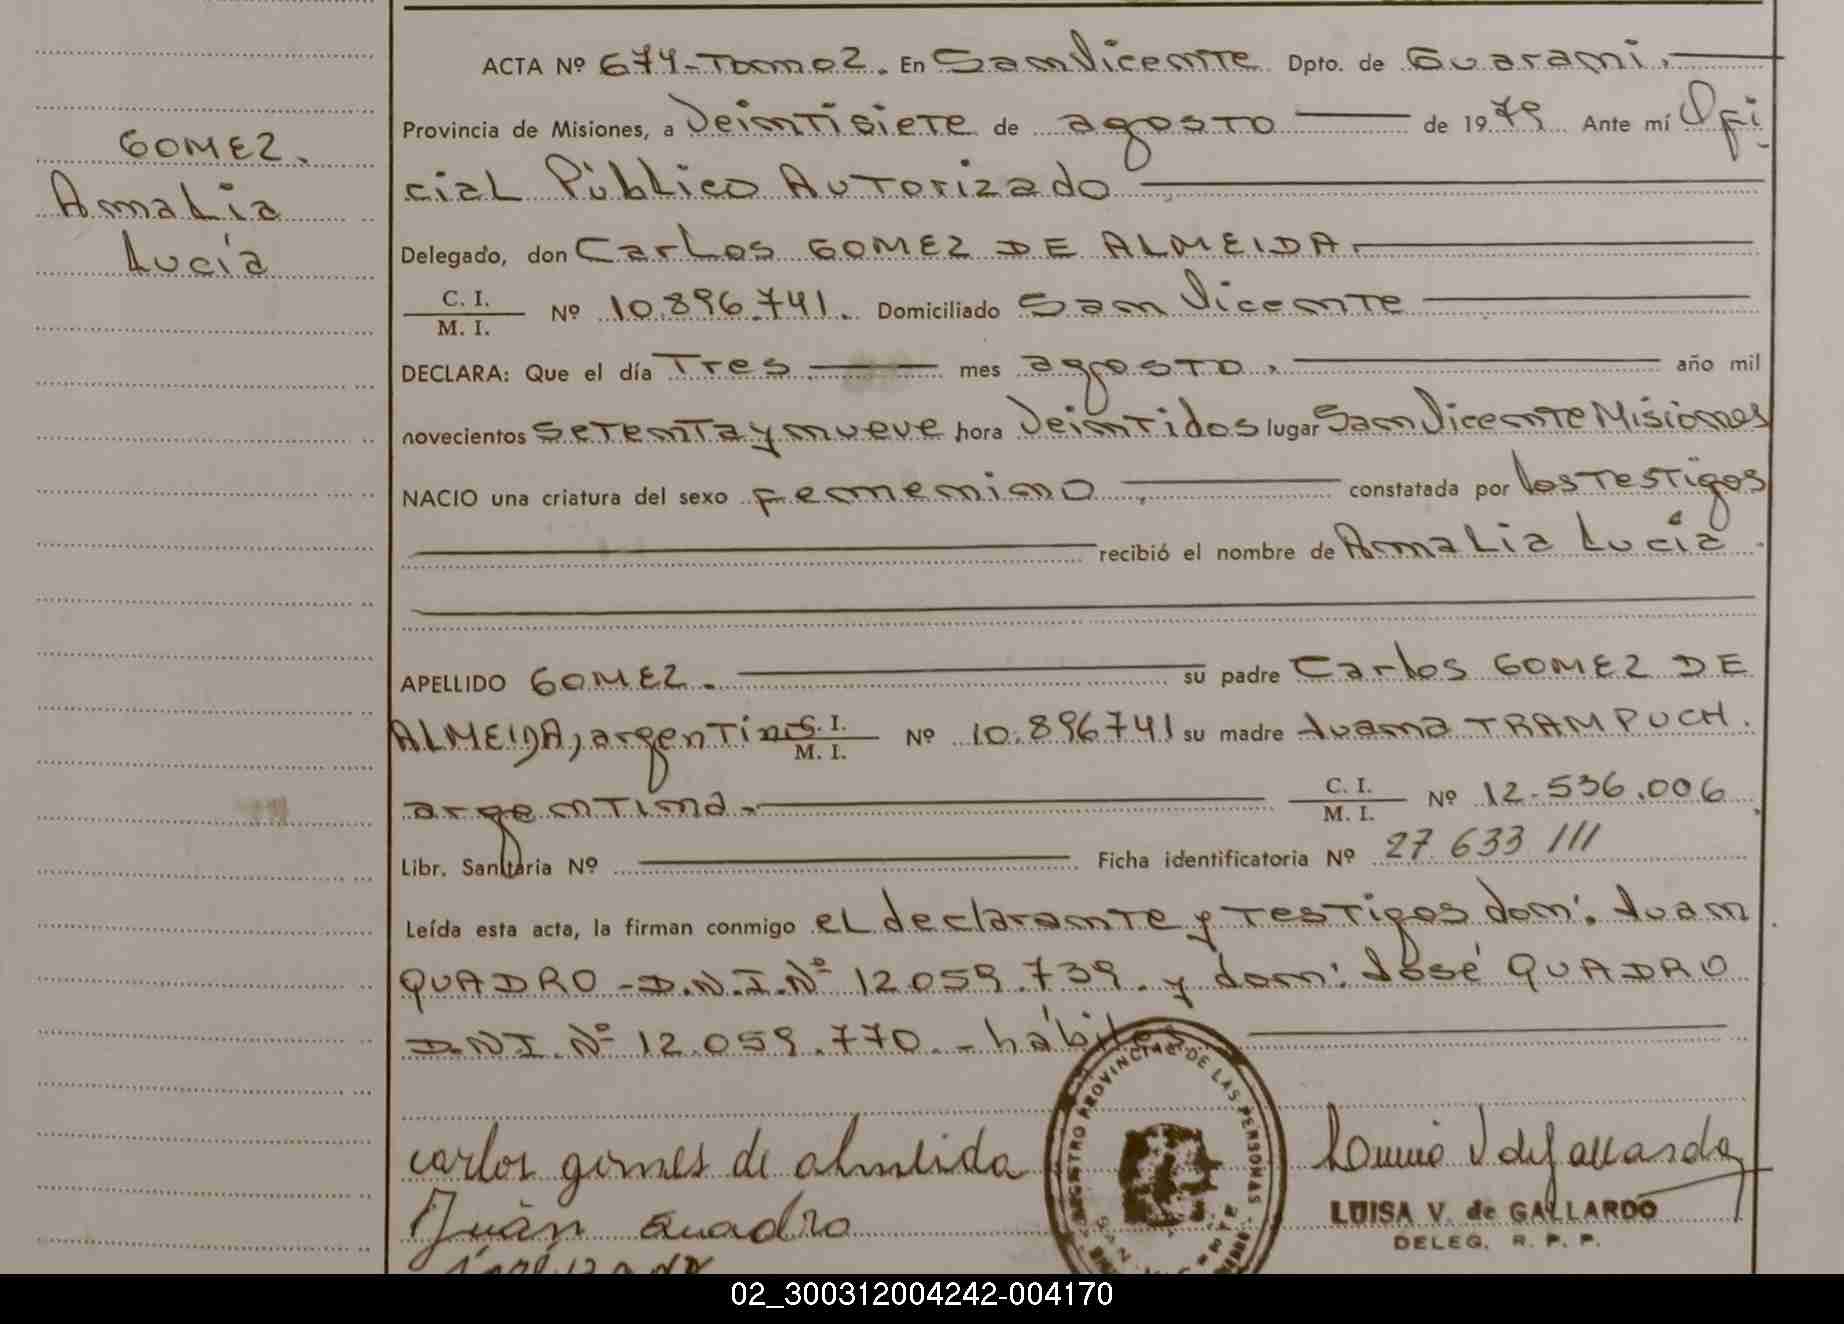 GOMEZ.
Amalia
Lucía
ACTA Nº 674-Tomo 2. En San Vicente Dpto. de Guaraní.
Provincia de Misiones, a Veintisiete de agosto de 1979 Ante mí Ofi
cial Público Autorizado
Delegado, don Carlos GOMEZ DE ALMEIDA.
C. I.
M. I. Nº 10.896.741. Domiciliado San Vicente
DECLARA: Que el día Tres mes agosto, año mil
novecientos setenta y nueve hora Veintidos lugar San Vicente Misiones
NACIO una criatura del sexo femenino constatada por los testigos
recibió el nombre de Amalia Lucía
APELLIDO GOMEZ. su padre Carlos GOMEZ DE
ALMEIDA, argentino C. I. M. I. Nº 10.896741 su madre Juana TRAMPUCH.
argentina.- C. I. M. I. Nº 12.536.006
Libr. Sanitaria Nº Ficha identificatoria Nº 27 633 111
Leída esta acta, la firman conmigo el declarante y testigos don: Juan
QUADRO - D.N.I. Nº 12059.739. y don: José QUADRO
D.N.I. Nº 12.059.770.- hábiles
carlos gomes de almeida
Juàn Quadro
REGISTRO PROVINCIAL DE LAS PERSONAS
LUISA V. de GALLARDO
DELEG. R. P. P.
02_300312004242-004170